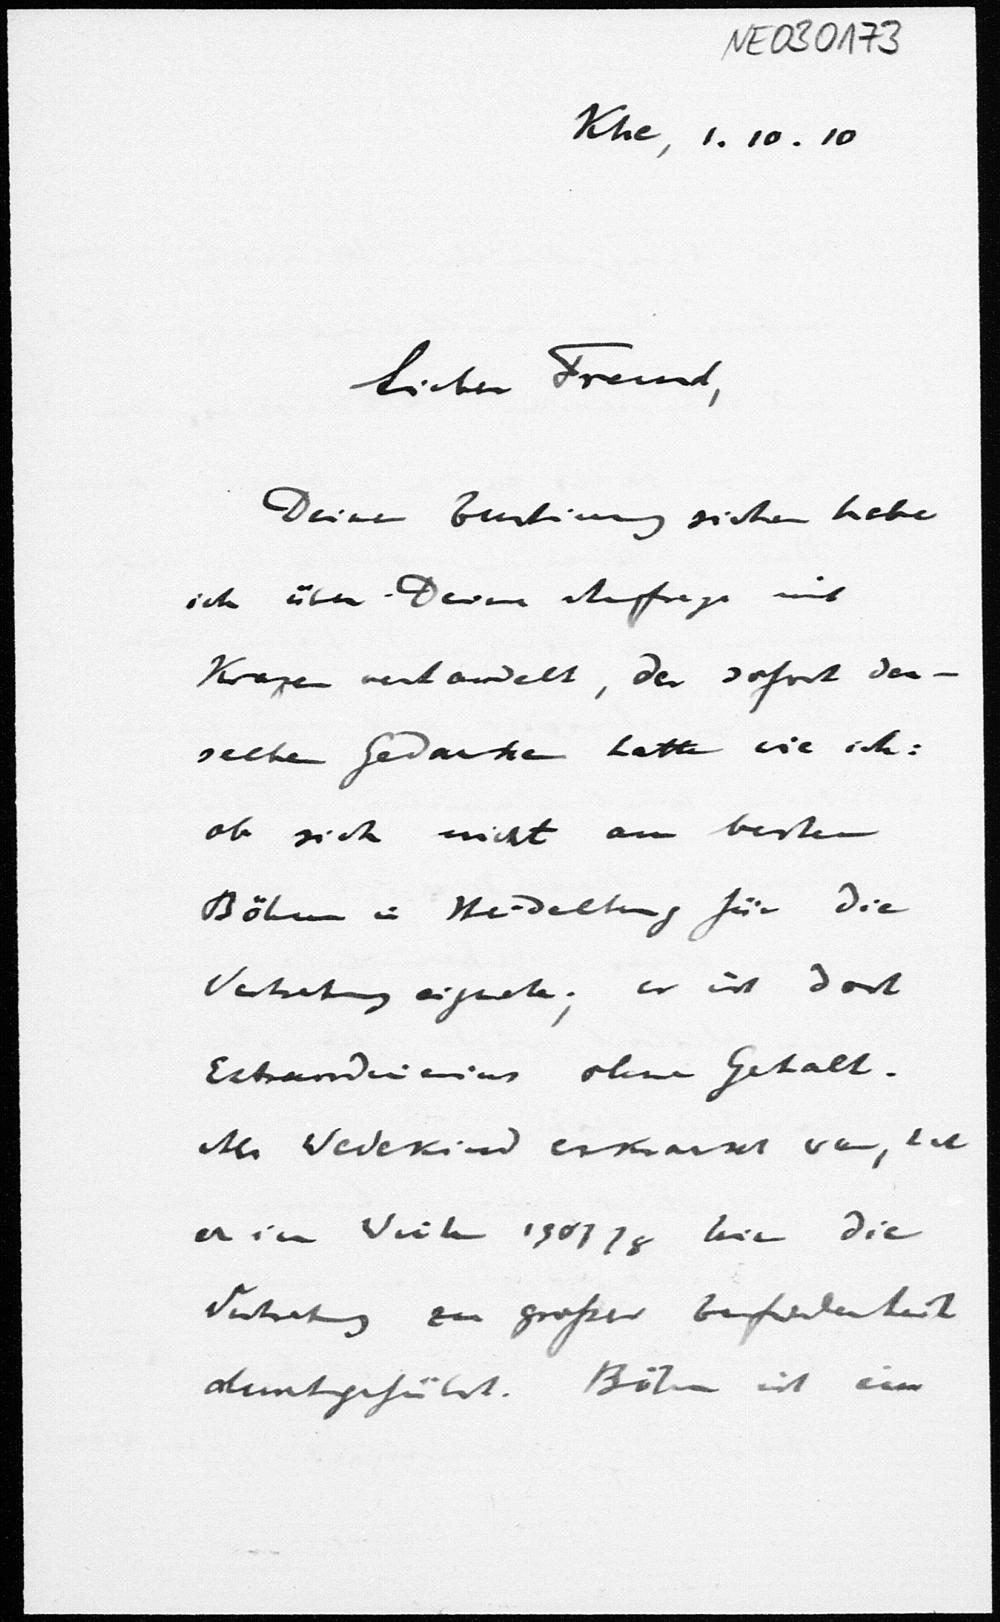 NE030173
Khe, 1.10.10
Lieber Freund,
Deiner Zustimmung sicher habe
ich über Deine Anfrage mit
Krazer verhandelt, der sofort den-
selben Gedanken hatte wie ich:
ob sich nicht am besten
Böhm in Heidelberg für die
Vertretung eignete; er ist dort
Extraordinarius ohne Gehalt.
Als Wedekind erkrankt war, hat
er im Winter 1907/8 hier die
Vertretung zu großer Zufriedenheit
durchgeführt. Böhm ist ein